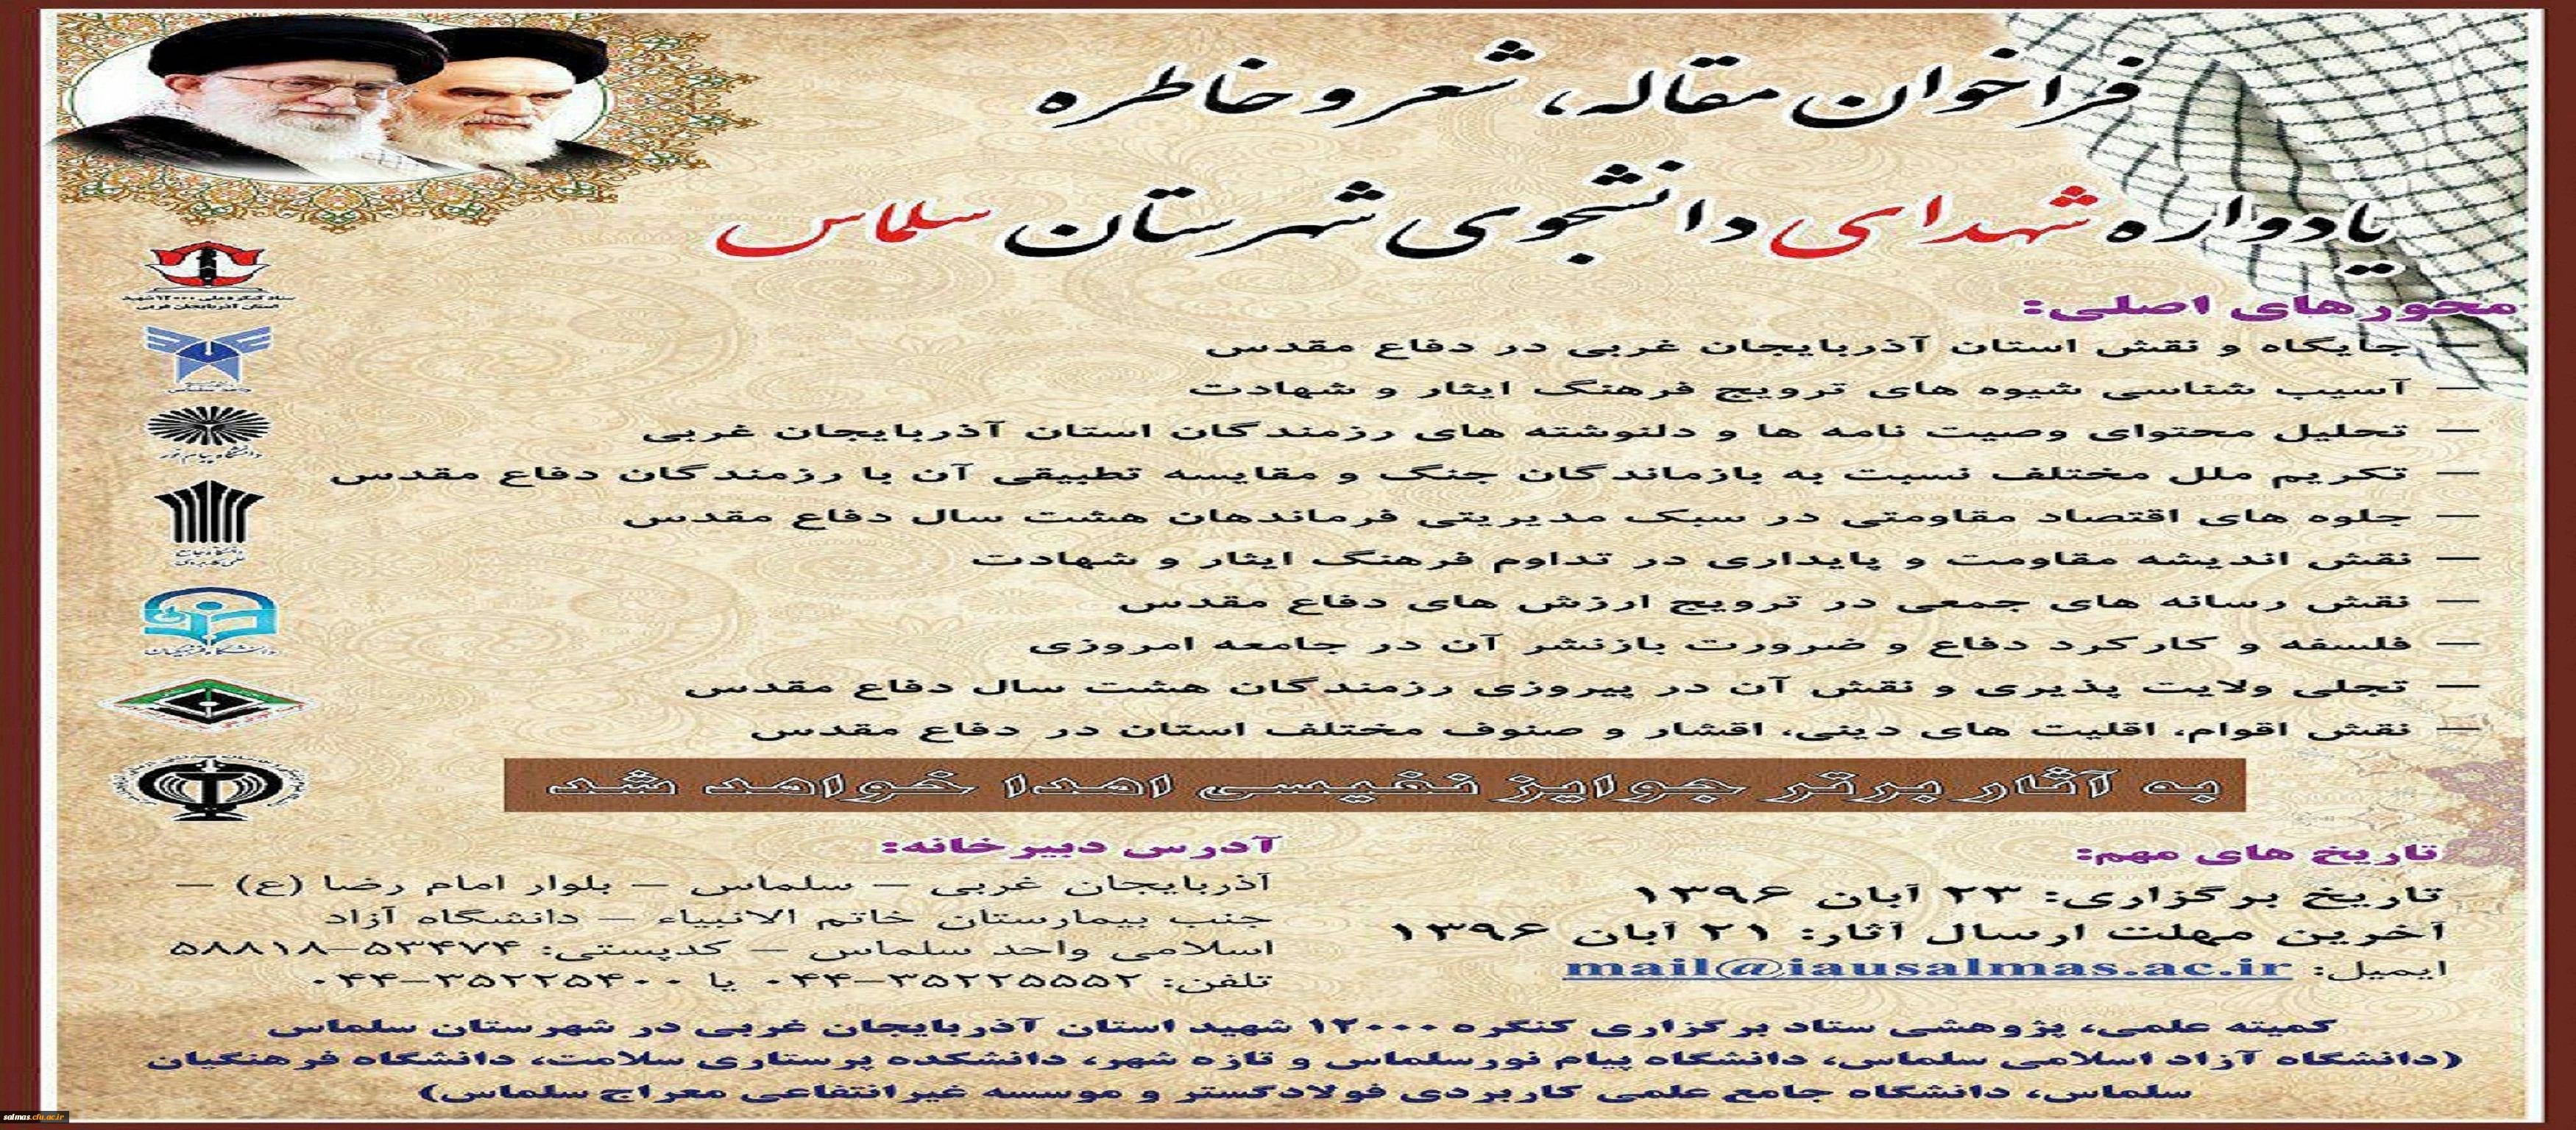 فراخوان مقاله، شعر و خاطره
یادواره شهدای دانشجوی شهرستان سلماس
محورهای اصلی:
— جایگاه و نقش استان آذربایجان غربی در دفاع مقدس
— آسیب شناسی شیوه های ترویج فرهنگ ایثار و شهادت
— تحلیل محتوای وصیت نامه ها و دلنوشته های رزمندگان استان آذربایجان غربی
— تکریم ملل مختلف نسبت به بازماندگان جنگ و مقایسه تطبیقی آن با رزمندگان دفاع مقدس
— جلوه های اقتصاد مقاومتی در سبک مدیریتی فرماندهان هشت سال دفاع مقدس
— نقش اندیشه مقاومت و پایداری در تداوم فرهنگ ایثار و شهادت
— نقش رسانه های جمعی در ترویج ارزش های دفاع مقدس
— فلسفه و کارکرد دفاع و ضرورت بازنشر آن در جامعه امروزی
— تجلی ولایت پذیری و نقش آن در پیروزی رزمندگان هشت سال دفاع مقدس
— نقش اقوام، اقلیت های دینی، اقشار و صنوف مختلف استان در دفاع مقدس
به آثار برتر جوایز نفیسی اهدا خواهد شد
تاریخ های مهم:
تاریخ برگزاری: ۲۳ آبان ۱۳۹۶
آخرین مهلت ارسال آثار: ۲۱ آبان ۱۳۹۶
ایمیل: mail@iausalmas.ac.ir
آدرس دبیرخانه:
آذربایجان غربی – سلماس – بلوار امام رضا (ع) –
جنب بیمارستان خاتم الانبیاء – دانشگاه آزاد
اسلامی واحد سلماس – کدپستی: ۵۳۴۷۴–۵۸۸۱۸
تلفن: ۳۵۲۲۵۵۵۲–۰۴۴ یا ۳۵۲۲۵۴۰۰–۰۴۴
کمیته علمی، پژوهشی ستاد برگزاری کنگره ۱۲۰۰۰ شهید استان آذربایجان غربی در شهرستان سلماس
(دانشگاه آزاد اسلامی سلماس، دانشگاه پیام نورسلماس و تازه شهر، دانشکده پرستاری سلامت، دانشگاه فرهنگیان
سلماس، دانشگاه جامع علمی کاربردی فولادگستر و موسسه غیرانتفاعی معراج سلماس)
ستاد کنگره ملی ۱۲۰۰۰ شهید
استان آذربایجان غربی
واحد سلماس
دانشگاه پیام نور
دانشگاه جامع
علمی کاربردی
دانشگاه فرهنگیان
salmas.cfu.ac.ir